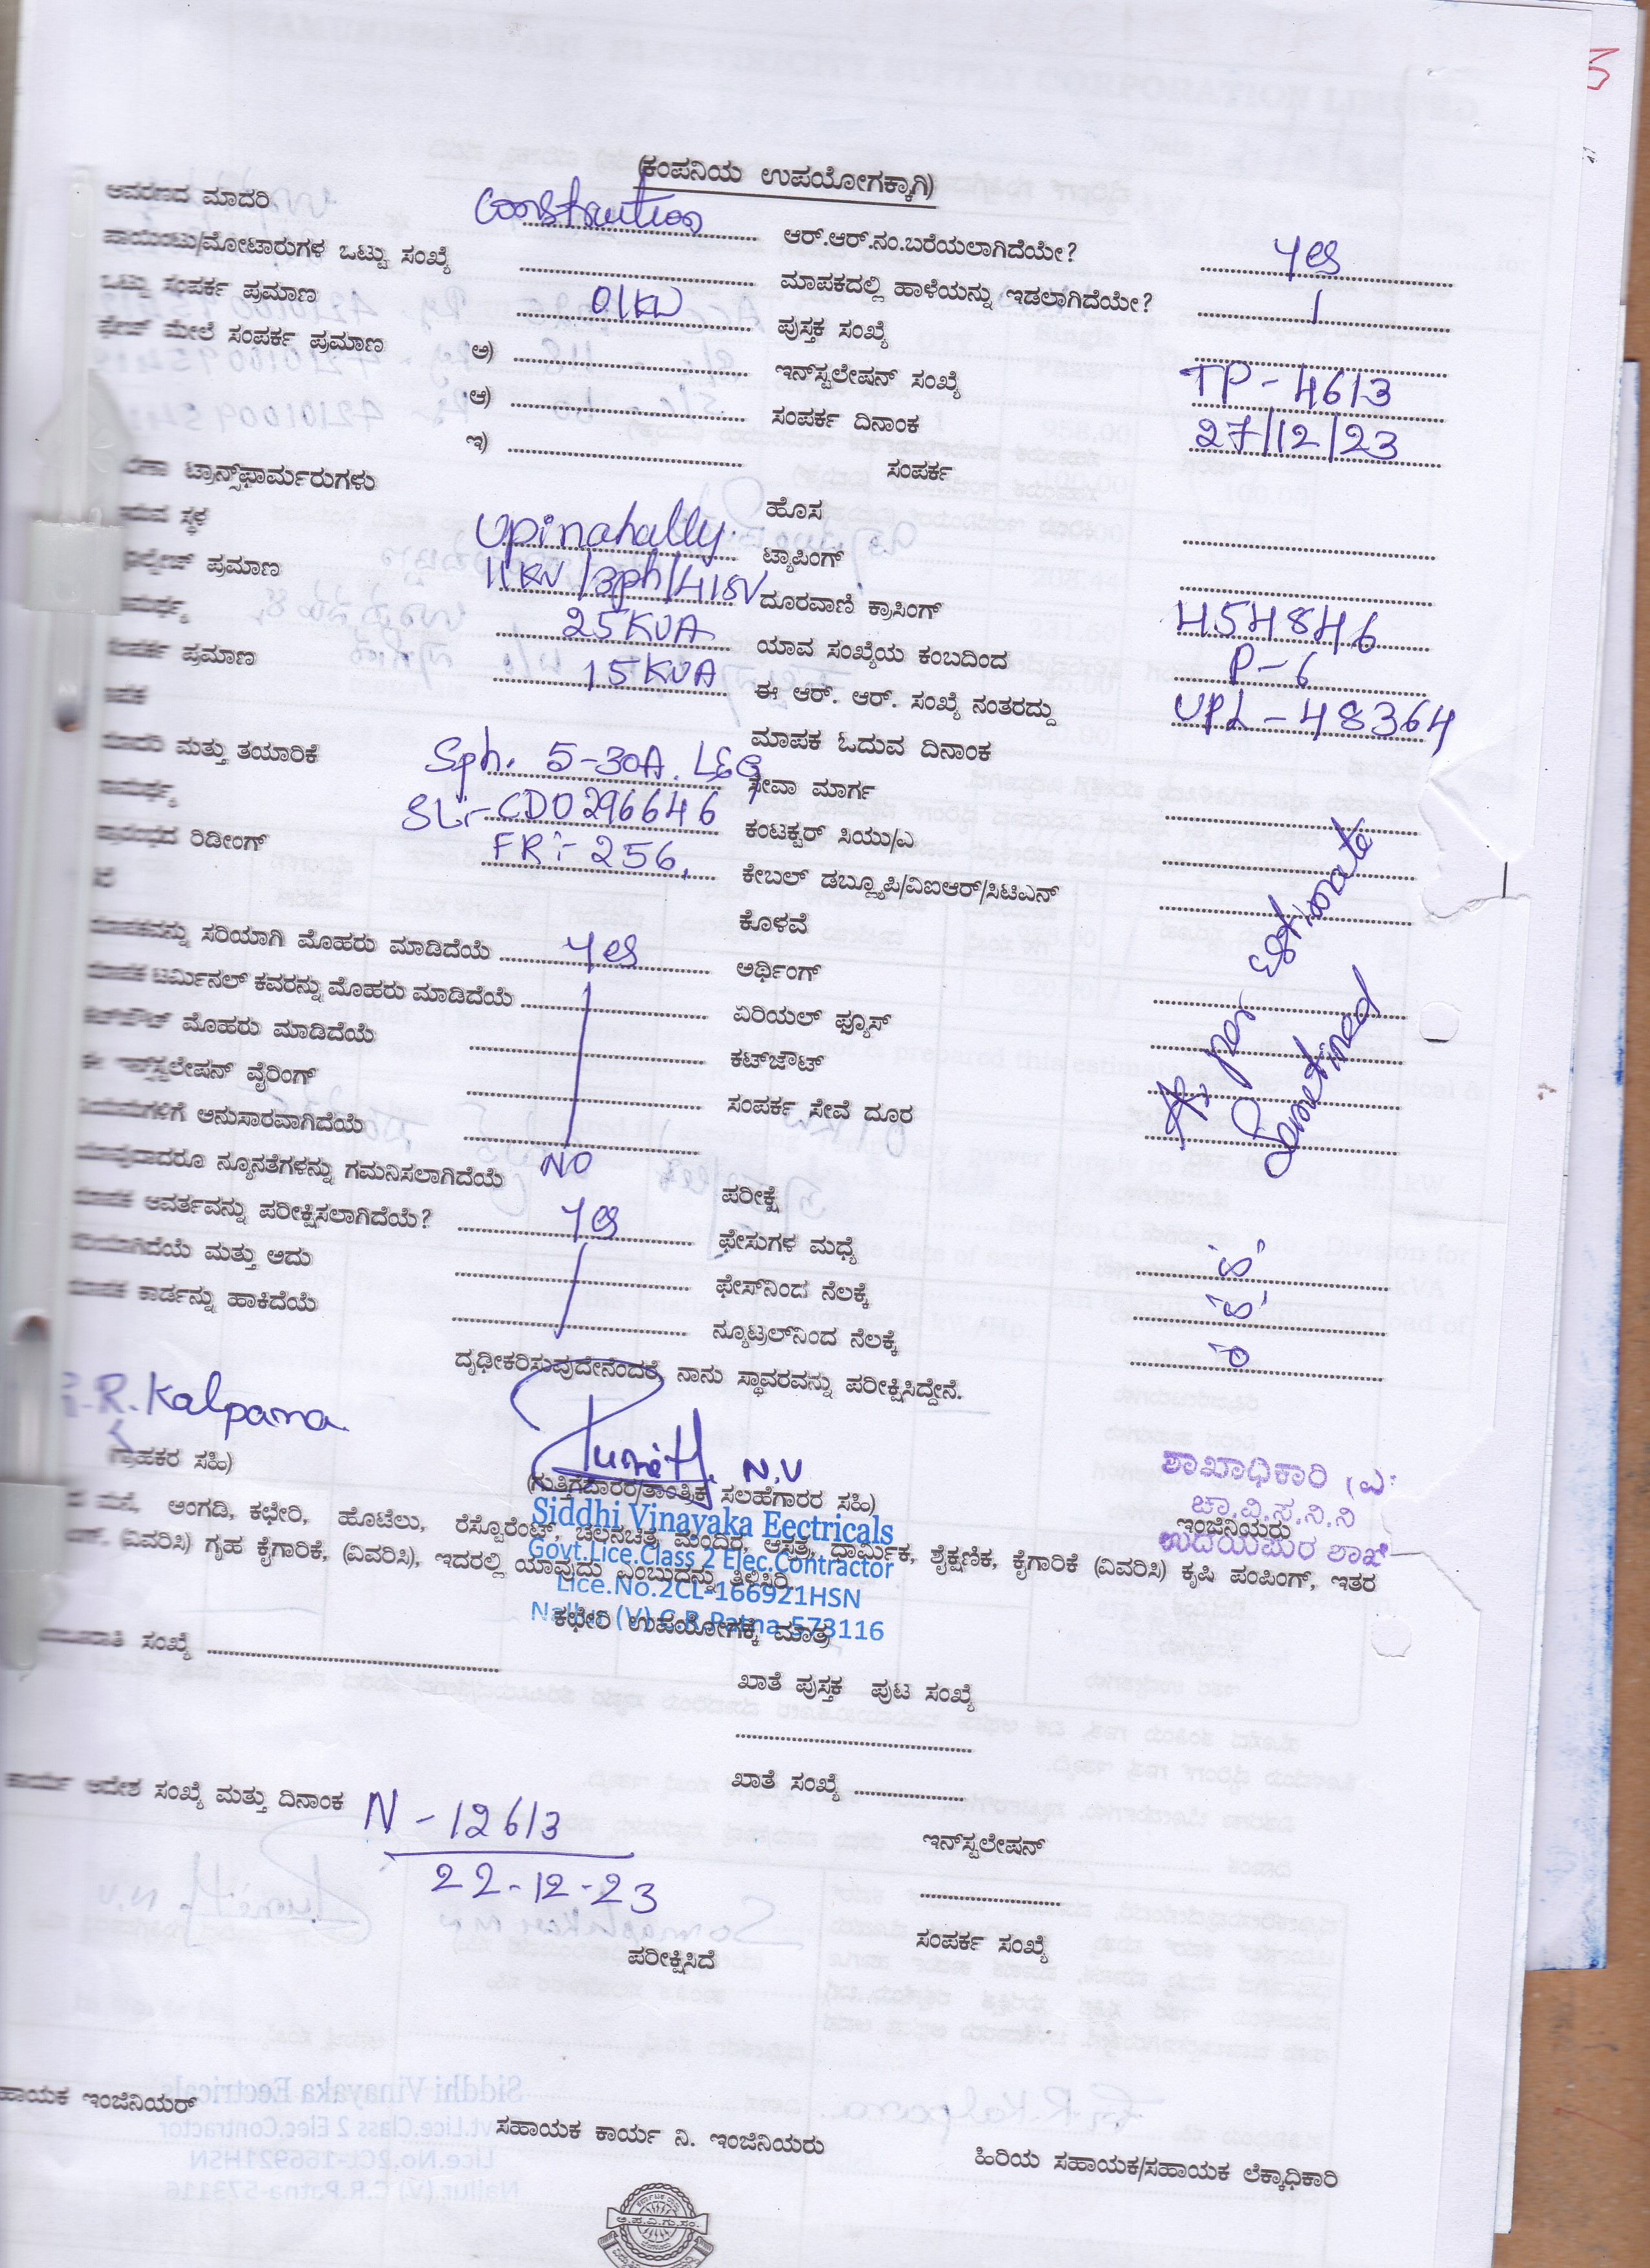 (ಕಂಪನಿಯ ಉಪಯೋಗಕ್ಕಾಗಿ)
ಆವರಣದ ಮಾದರಿ Construction ಆರ್.ಆರ್.ನಂ.ಬರೆಯಲಾಗಿದೆಯೇ? yes
ಪಾಯಿಂಟು/ಮೋಟಾರುಗಳ ಒಟ್ಟು ಸಂಖ್ಯೆ ಮಾಪಕದಲ್ಲಿ ಹಾಳೆಯನ್ನು ಇಡಲಾಗಿದೆಯೇ?
ಒಟ್ಟು ಸಂಪರ್ಕ ಪ್ರಮಾಣ 01KW ಪುಸ್ತಕ ಸಂಖ್ಯೆ
ಫೇಜ್ ಮೇಲೆ ಸಂಪರ್ಕ ಪ್ರಮಾಣ ಅ) ಇನ್‌ಸ್ಟಲೇಷನ್ ಸಂಖ್ಯೆ TP-4613
ಆ) ಸಂಪರ್ಕ ದಿನಾಂಕ 27/12/23
ಇ) ಸಂಪರ್ಕ
ಟ್ರಾನ್ಸ್‌ಫಾರ್ಮರುಗಳು ಹೊಸ
ಸ್ಥಳ Upinahally ಟ್ಯಾಪಿಂಗ್
ಪ್ರಮಾಣ 11KV/3ph/415V ದೂರವಾಣಿ ಕ್ರಾಸಿಂಗ್ 454846
25KVA ಯಾವ ಸಂಖ್ಯೆಯ ಕಂಬದಿಂದ P-6
ಸಂಪರ್ಕ ಪ್ರಮಾಣ 15KVA ಈ ಆರ್. ಆರ್. ಸಂಖ್ಯೆ ನಂತರದ್ದು UPL-48364
ಮಾಪಕ ಓದುವ ದಿನಾಂಕ
ಮಾದರಿ ಮತ್ತು ತಯಾರಿಕೆ Sph. 5-30A. L&G ಸೇವಾ ಮಾರ್ಗ
ಸಾಮರ್ಥ್ಯ SL:-CD0296646 ಕಂಟಕ್ಟರ್ ಸಿಯು/ಎ
ಪ್ರಾರಂಭದ ರಿಡೀಂಗ್ FR:-256, ಕೇಬಲ್ ಡಬ್ಲ್ಯೂಪಿ/ವಿಐಆರ್/ಸಿಟಿಎನ್
ಕೊಳವೆ
ಮಾಪಕವನ್ನು ಸರಿಯಾಗಿ ಮೊಹರು ಮಾಡಿದೆಯೆ yes ಅರ್ಥಿಂಗ್
ಮಾಪಕ ಟರ್ಮಿನಲ್ ಕವರನ್ನು ಮೊಹರು ಮಾಡಿದೆಯೆ ಏರಿಯಲ್ ಫ್ಯೂಸ್
ಕಟ್‌ಔಟ್ ಮೊಹರು ಮಾಡಿದೆಯೆ ಕಟ್‌ಔಟ್
ಈ ಇನ್‌ಸ್ಟಲೇಷನ್ ವೈರಿಂಗ್ ಸಂಪರ್ಕ ಸೇವೆ ದೂರ
As per estimate
Sanctined
ನಿಯಮಗಳಿಗೆ ಅನುಸಾರವಾಗಿದೆಯೆ
ಯಾವುದಾದರೂ ನ್ಯೂನತೆಗಳನ್ನು ಗಮನಿಸಲಾಗಿದೆಯೆ NO ಪರೀಕ್ಷೆ
ಮಾಪಕ ಆವರ್ತವನ್ನು ಪರೀಕ್ಷಿಸಲಾಗಿದೆಯೆ? yes ಫೇಸುಗಳ ಮಧ್ಯೆ
ಸರಿಯಾಗಿದೆಯೆ ಮತ್ತು ಅದು ಫೇಸ್‌ನಿಂದ ನೆಲಕ್ಕೆ
ಮಾಪಕ ಕಾರ್ಡನ್ನು ಹಾಕಿದೆಯೆ ನ್ಯೂಟ್ರಲ್‌ನಿಂದ ನೆಲಕ್ಕೆ
ದೃಢೀಕರಿಸುವುದೇನೆಂದರೆ, ನಾನು ಸ್ಥಾವರವನ್ನು ಪರೀಕ್ಷಿಸಿದ್ದೇನೆ.
R. Kalpana
Punith. N.V
ಗ್ರಾಹಕರ ಸಹಿ) (ಗುತ್ತಿಗೆದಾರರ/ತಾಂತ್ರಿಕ ಸಲಹೆಗಾರರ ಸಹಿ)
ಶಾಖಾಧಿಕಾರಿ (ಎ
ಚಾ.ವಿ.ಸ.ನಿ.ನಿ
ಇಂಜಿನಿಯರು
ಉದಯಪುರ ಶಾಖೆ
Siddhi Vinayaka Eectricals
Govt.Lice.Class 2 Elec.Contractor
Lice.No.2CL-166921HSN
Nallur (V) C.R.Patna-573116
ಮನೆ, ಅಂಗಡಿ, ಕಛೇರಿ, ಹೊಟೆಲು, ರೆಸ್ಟೊರೆಂಟ್, ಚಲನಚಿತ್ರ ಮಂದಿರ, ಆಸ್ಪತ್ರೆ, ಧಾರ್ಮಿಕ, ಶೈಕ್ಷಣಿಕ, ಕೈಗಾರಿಕೆ (ವಿವರಿಸಿ) ಕೃಷಿ ಪಂಪಿಂಗ್, ಇತರ
(ವಿವರಿಸಿ) ಗೃಹ ಕೈಗಾರಿಕೆ, (ವಿವರಿಸಿ), ಇದರಲ್ಲಿ ಯಾವುದು ಎಂಬುದನ್ನು ತಿಳಿಸಿರಿ.
ಕಛೇರಿ ಉಪಯೋಗಕ್ಕೆ ಮಾತ್ರ
ಸಂಖ್ಯೆ
ಖಾತೆ ಪುಸ್ತಕ ಪುಟ ಸಂಖ್ಯೆ
ಖಾತೆ ಸಂಖ್ಯೆ
ಕಾರ್ಯ ಆದೇಶ ಸಂಖ್ಯೆ ಮತ್ತು ದಿನಾಂಕ N-12613
22-12-23
ಇನ್‌ಸ್ಟಲೇಷನ್
ಸಂಪರ್ಕ ಸಂಖ್ಯೆ
ಪರೀಕ್ಷಿಸಿದೆ
ಹಾಯಕ ಇಂಜಿನಿಯರ್
ಸಹಾಯಕ ಕಾರ್ಯ ನಿ. ಇಂಜಿನಿಯರು
ಹಿರಿಯ ಸಹಾಯಕ/ಸಹಾಯಕ ಲೆಕ್ಕಾಧಿಕಾರಿ